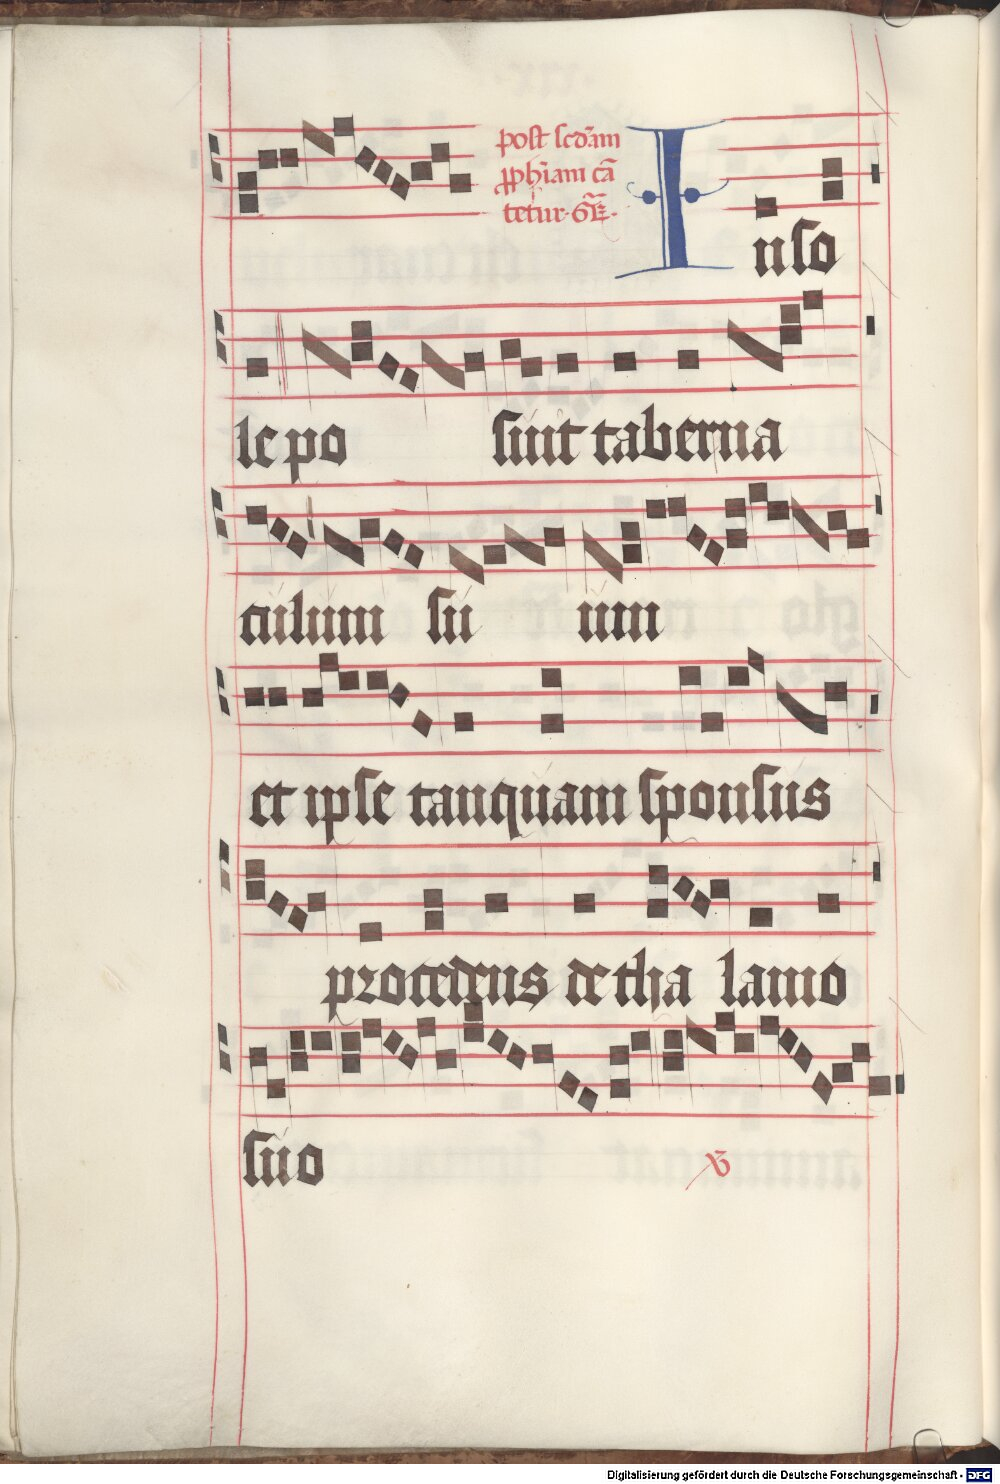 post scdam
pphiam cā
tetur. GR.
In so
le po suit taberna
culum su um
et ipse tanquam sponsus
procedens de tha lamo
suo V
Digitalisierung gefördert durch die Deutsche Forschungsgemeinschaft - DFG